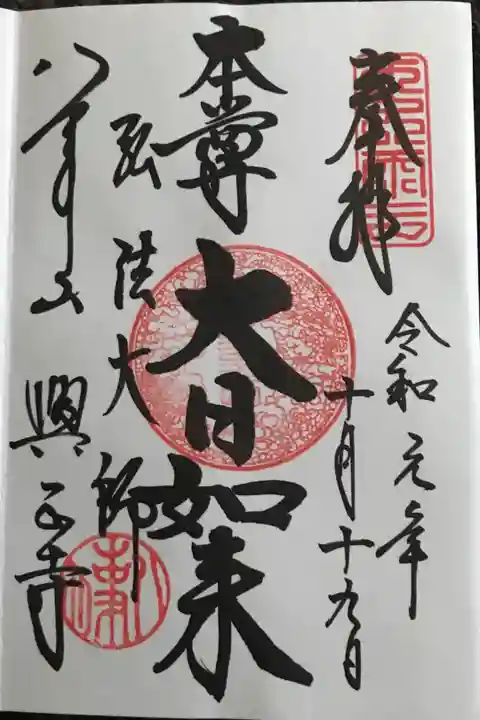 奉拝
令和元年
十月十九日
本尊
大日如来
弘法大師
八事山 興正寺